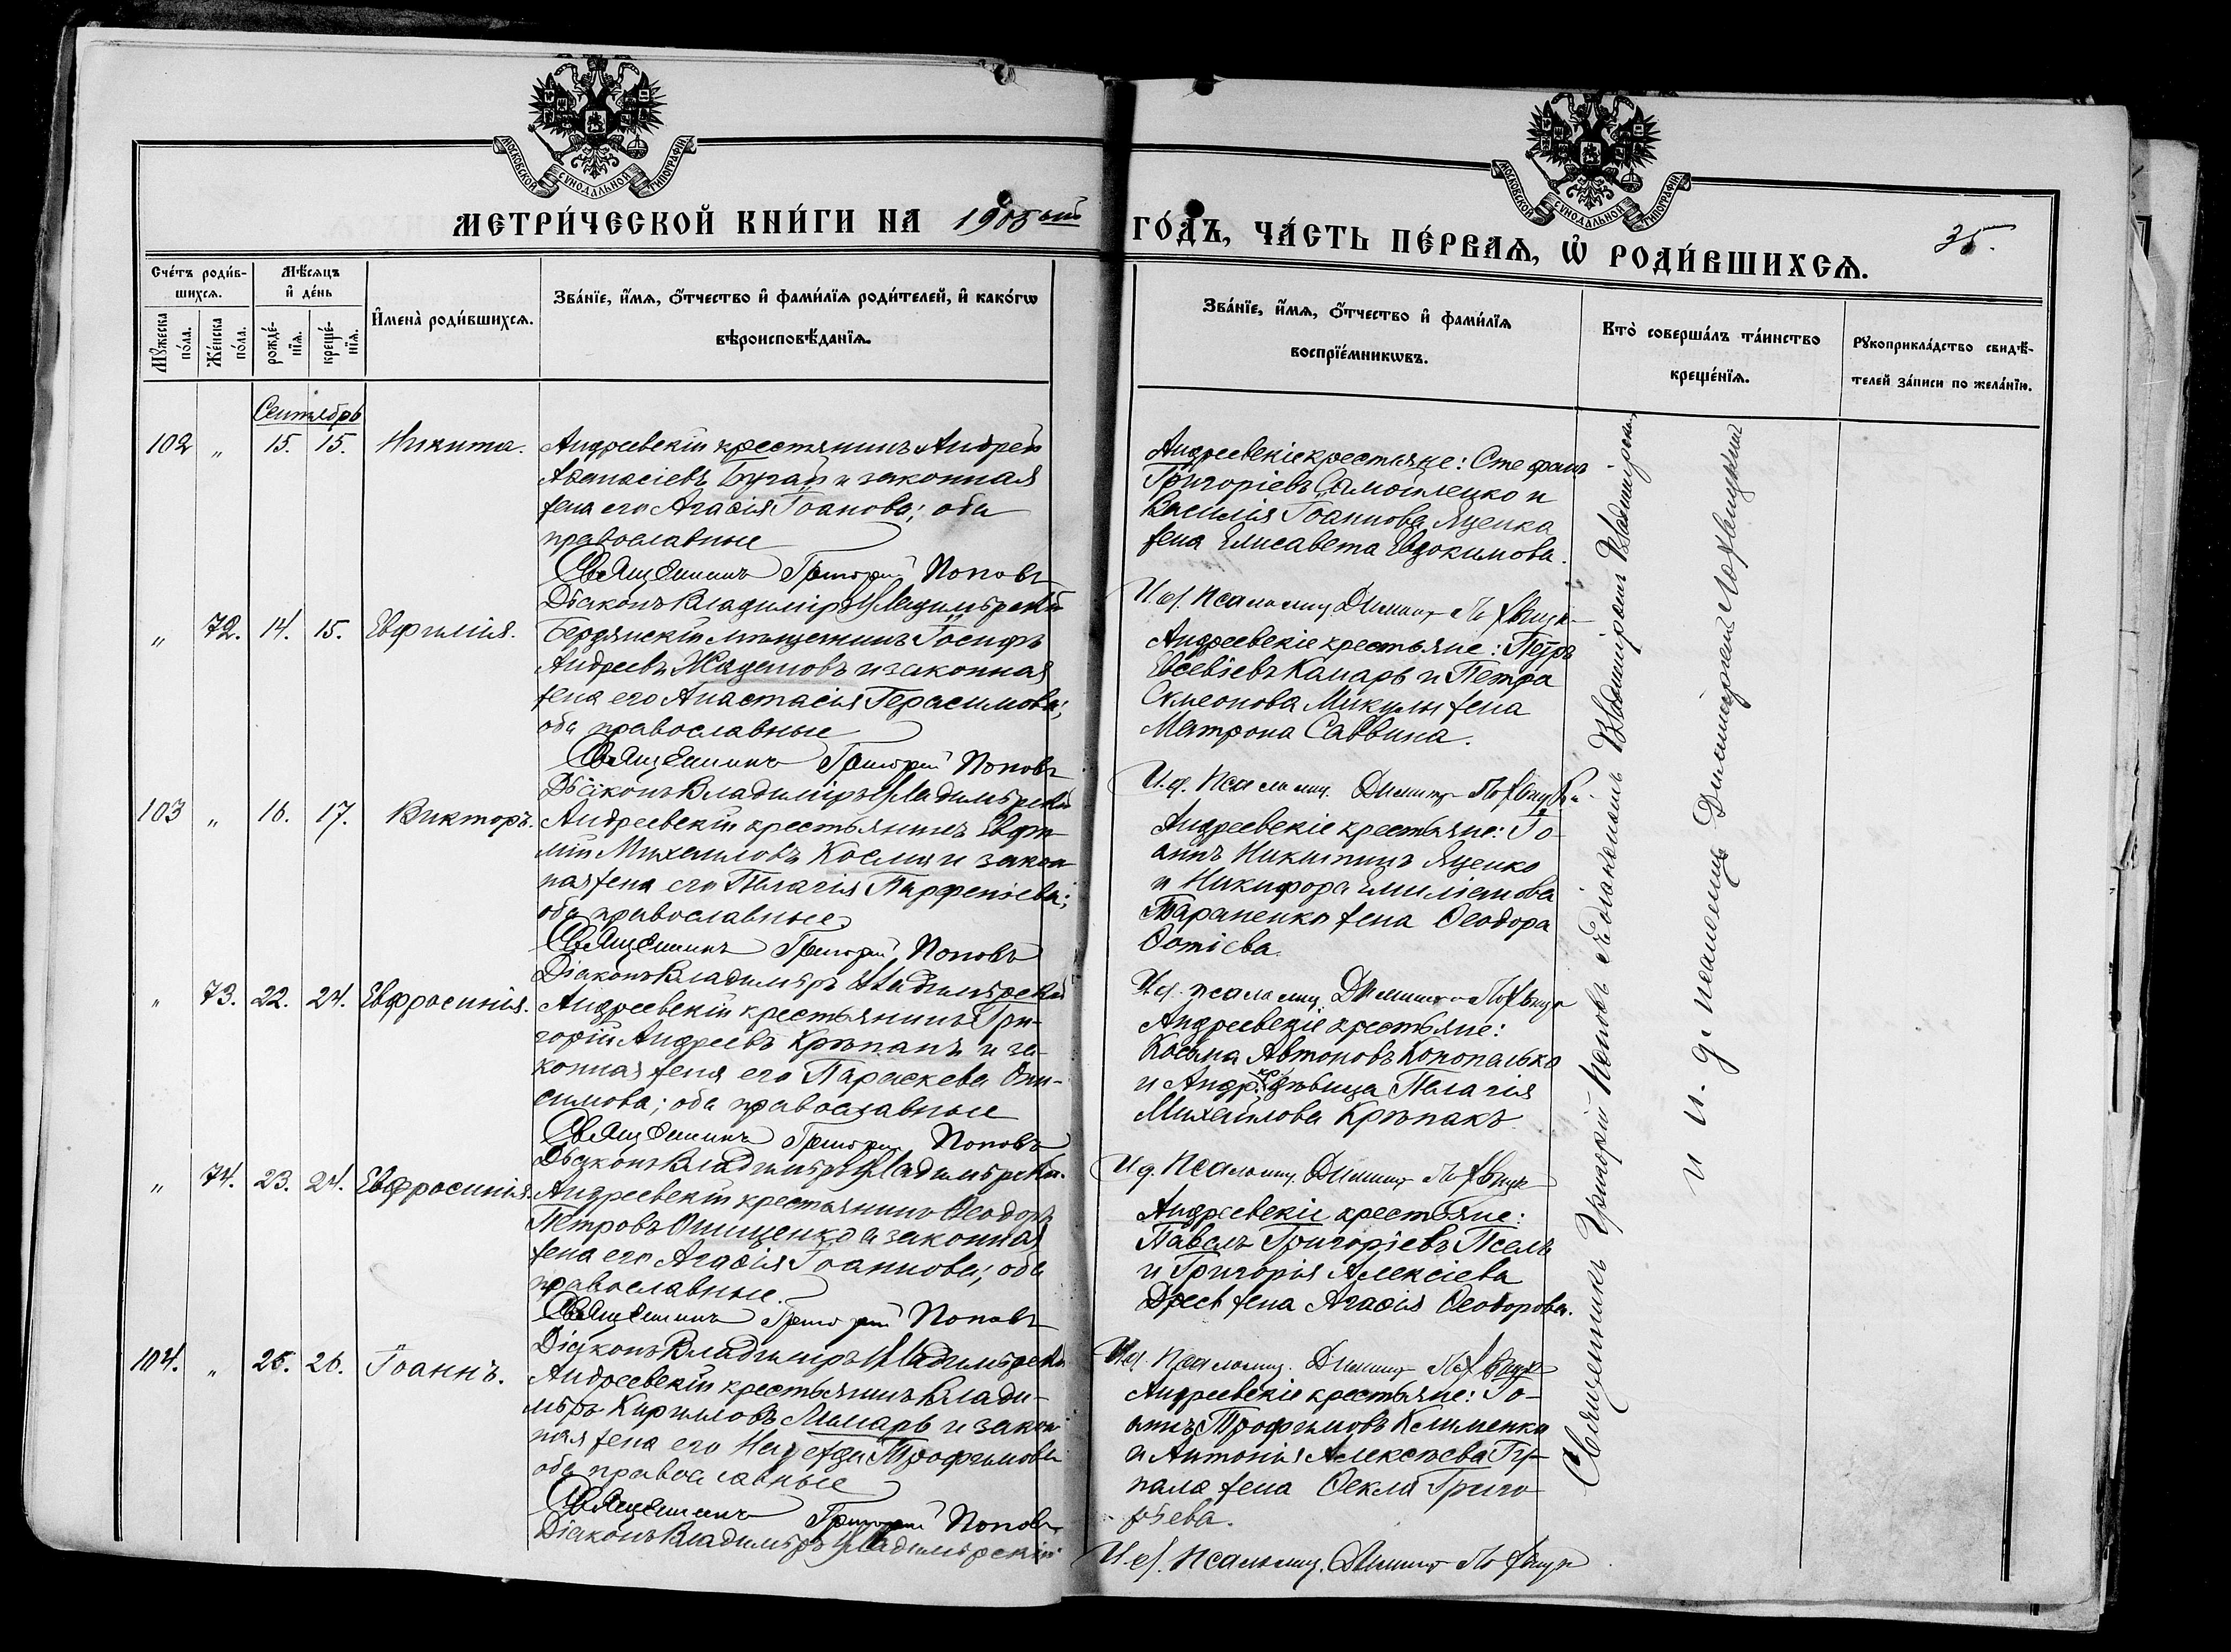 МОСКОВСКОЙ СѴНОДАЛЬНОЙ ТИПОГРАФІИ
МОСКОВСКОЙ СѴНОДАЛЬНОЙ ТИПОГРАФІИ
МЕТРИ́ЧЕСКОЙ КНИ́ГИ НА 1905ый
ГО́ДЪ, ЧА́СТЬ ПЕ́РВАѦ, Ѡ҆ РОДИ́ВШИХСѦ.
35.
Сче́тъ роди́в-
шихсѧ.
Мѣ́сѧцъ
и҆ де́нь
И҆мена̀ роди́вшихсѧ.
Зва́нїе, и҆́мѧ, ѻ҆́тчество и҆ фами́лїѧ роди́телей, и҆ како́гѡ
вѣроисповѣ́данїѧ.
Мꙋ́жеска по́ла.
Же́нска по́ла.
рожде́-
нїѧ.
креще́-
нїѧ.
Зва́нїе, и҆́мѧ, ѻ҆́тчество и҆ фами́лїѧ
воспрїе́мникѡвъ.
Кто̀ соверша́лъ та́инство
креще́нїѧ.
Рꙋкоприкла́дство свидѣ́-
телей за́писи по жела́нїю.
Сентябрь
102 " 15. 15. Никита.
Андреевскій крестьянинъ Андрей
Аѳанасіевъ Бугай и законная
жена его Агаѳія Іоанова; оба
православные
Священникъ Григорій Поповъ
Діаконъ Владиміръ Владимірскій
Андреевскіе крестьяне: Стефанъ
Григоріевъ Самойленко и
Василія Іоаннова Яценка
жена Елисавета Евдокимова.
И.д. псаломщ. Димитр Лохвицк
" 72. 14. 15. Евфимія.
Бердянскій мѣщанинъ Іосифъ
Андреевъ и законная
жена его Анастасія Герасимова;
оба православные
Священникъ Григорій Поповъ
Діаконъ Владиміръ Владимірскій
Андреевскіе крестьяне: Петръ
Евсевіевъ Канарь и Петра
Симеонова Микулы жена
Матрона Саввина.
И.д. псаломщ. Димитр Лохвицкі
103 " 16. 17. Викторъ.
Андреевскій крестьянинъ Евфи-
мій Михаиловъ Косма и закон
ная жена его Пелагія Парфеніева;
оба православные
Священникъ Григорій Поповъ
Діаконъ Владиміръ Владимірскій
Андреевскіе крестьяне: Іо-
аннъ Никитинъ Яценко
и Никифора Емиліанова
Тараненко жена Ѳеодора
Фотіева.
И.д. псаломщ. Димитр Лохвицк
" 73. 22. 24. Евфросинія.
Андреевскій крестьянинъ Гри-
горій Андреевъ Крѣпакъ и за-
конная жена его Параскева Они-
симова; оба православные
Священникъ Григорій Поповъ
Діаконъ Владиміръ Владимірскій
Андреевскіе крестьяне:
Косьма Автоновъ Конопалько
и Андр. кр. дѣвица Пелагія
Михайлова Крѣпакъ
И.д. псаломщ. Димитр Лохвицк
" 74. 23. 24. Евфросинія.
Андреевскій крестьянинъ Ѳеодоръ
Петровъ Онищенко и законная
жена его Агаѳія Іоаннова; оба
православные.
Священникъ Григорій Поповъ
Діаконъ Владиміръ Владимірскій
Андреевскіе крестьяне:
Павелъ Григоріевъ Псёлъ
и Григорія Алексіева
жена Агаѳія Ѳеодорова.
И.д. псаломщ. Димитр Лохвицк
104. " 25. 26. Іоаннъ.
Андреевскій крестьянинъ Влади-
міръ Кирилловъ Лимарь и закон
ная жена его Надежда Трофимова
оба православные
Священникъ Григорій Поповъ
Діаконъ Владиміръ Владимірскій
Андреевскіе крестьяне: Іо-
аннъ Трофимовъ Клименко
и Антонія Алексѣева Гу-
пала жена Ѳекла Григо-
рьева.
И.д. псаломщ. Димитр Лохвицк
Священникъ Григорій Поповъ съ діакономъ Владиміромъ Владимірскимъ
и и. д. псаломщ. Димитріемъ Лохвицкимъ